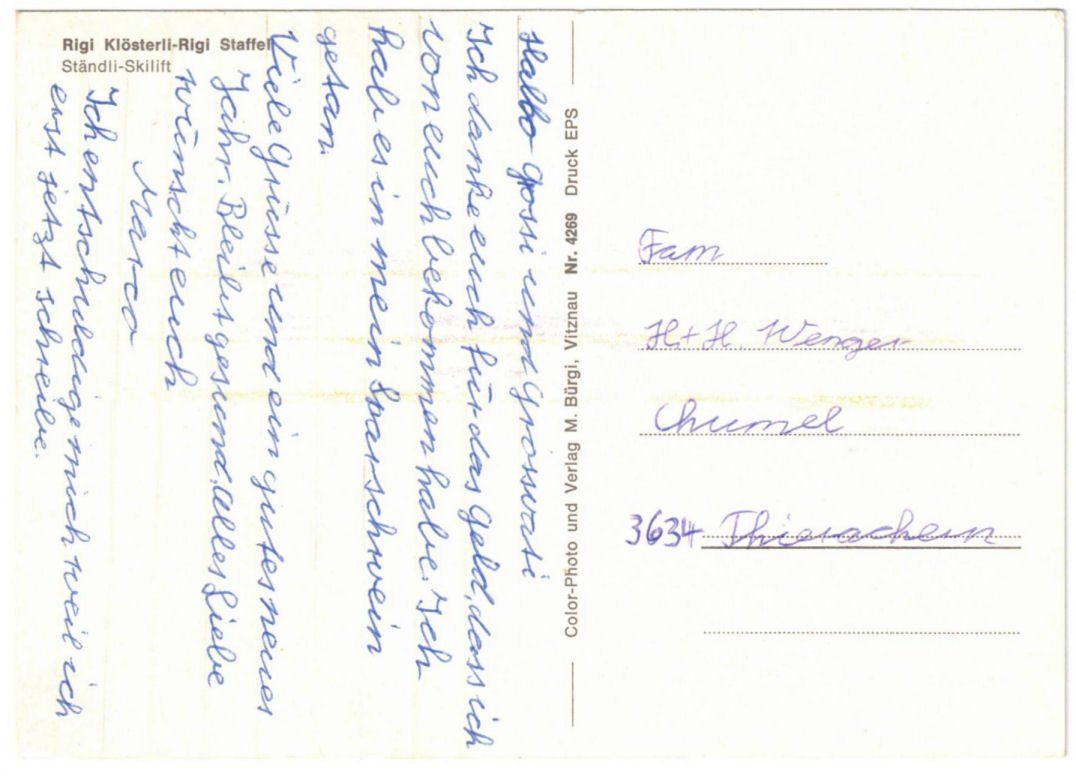 Rigi Klösterli-Rigi Staffel
Ständli-Skilift
Hallo Grossi und Grossvati
Ich danke euch für das Geld, dass ich
von euch bekommen habe. Ich
habe es in mein Sparschwein
getan.
Viele Grüsse und ein gutes neues
Jahr. Bleibt gesund. Alles Liebe
wünscht euch
Marco
Ich entschuldige mich weil ich
erst jetzt schreibe.
Color-Photo und Verlag M. Bürgi, Vitznau Nr. 4269 Druck EPS
Fam
H.+H. Wenger
Chumel
3634 Thierachern